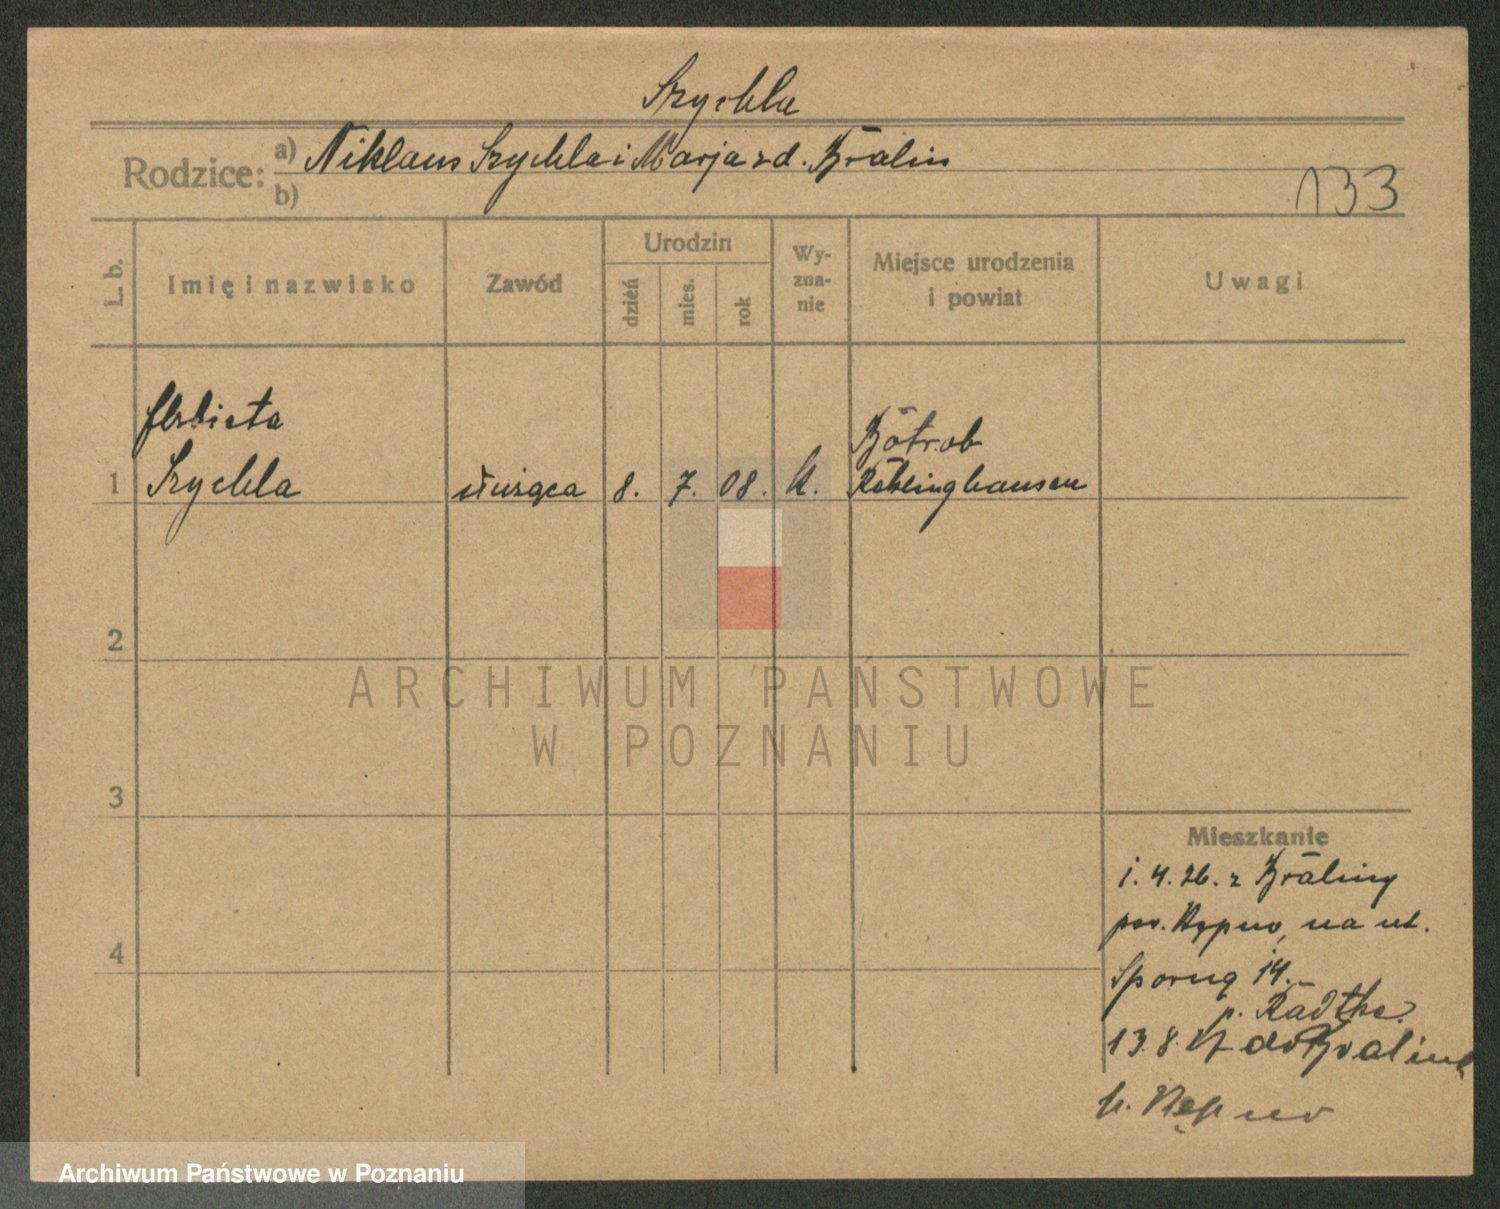 Szychla
Rodzice: a) Niklaus Szychla i Marja zd. Bralin
b)
133
L. b.
Imię i nazwisko
Zawód
Urodzin
dzień
mies.
rok
Wy-
zna-
nie
Miejsce urodzenia
i powiat
Uwagi
Elżbieta
1 Szychla służąca 8. 7. 08. k.
Röhlinghausen
2
ARCHIWUM PAŃSTWOWE
W POZNANIU
3
4
Mieszkanie
1.4.26. z Braliny
pow. Kępno, na ul.
Sporną 14.
p. Radtke.
13.8. do Bralina
p. Kępno
Archiwum Państwowe w Poznaniu